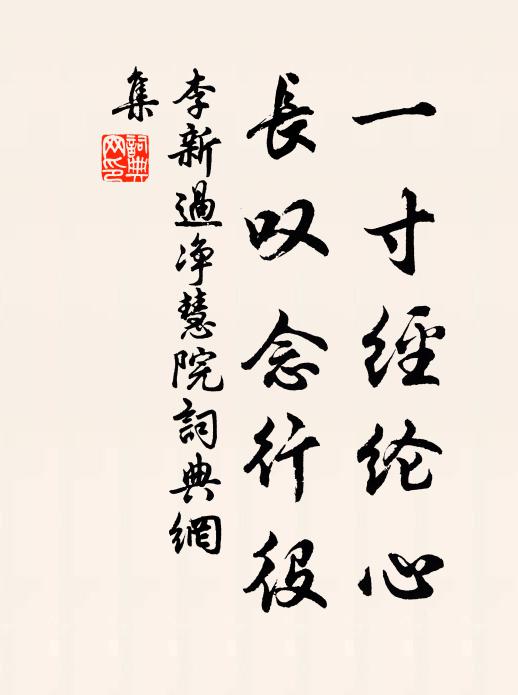 一寸經纶心
長叹念行役
李新過净慧院詞典網
集
詞典网印